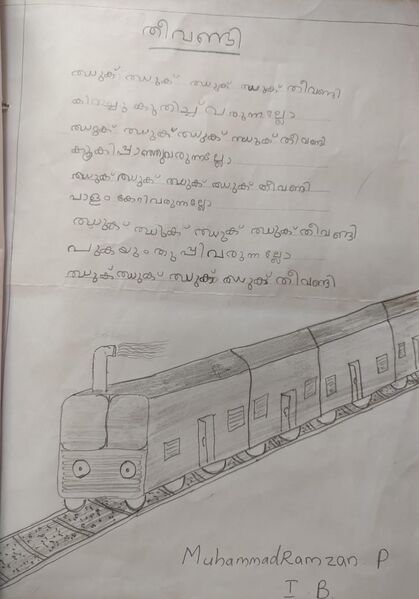 തീവണ്ടി
ഝുക് ഝുക് ഝുക് ഝുക് തീവണ്ടി
കിതച്ചു കുതിച്ച് വരുന്നല്ലോ
ഝുക് ഝുക് ഝുക് ഝുക് തീവണ്ടി
കൂകിപ്പാഞ്ഞുവരുന്നല്ലോ
ഝുക് ഝുക് ഝുക് ഝുക് തീവണ്ടി
പാളം കേറിവരുന്നല്ലോ
ഝുക് ഝുക് ഝുക് ഝുക് തീവണ്ടി
പുകയും തുപ്പിവരുന്നല്ലോ
ഝുക് ഝുക് ഝുക് ഝുക് തീവണ്ടി
MuhammadRamzan P
I B